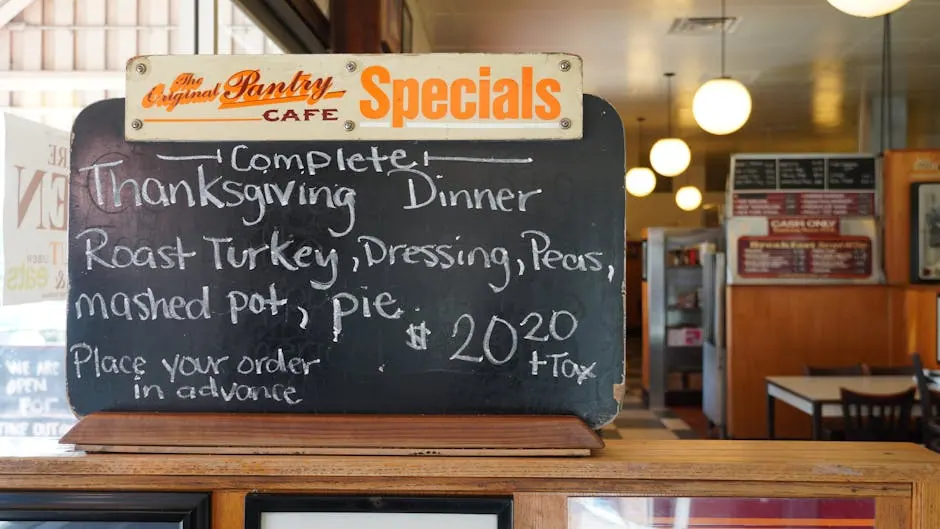 The Original Pantry CAFE Specials
Complete
Thanksgiving Dinner
Roast Turkey, Dressing, Peas,
mashed pot, pie
$ 20 20
+ Tax
Place your order
in advance
WE ARE
OPEN
CASH ONLY